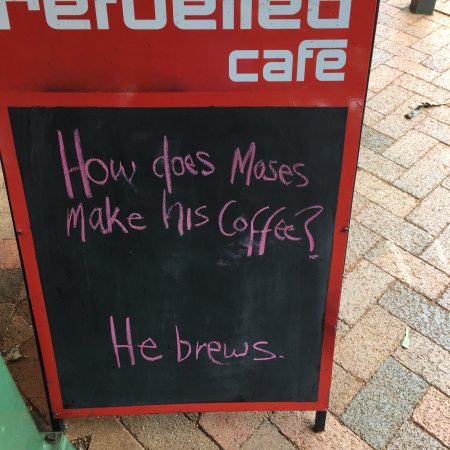 refuelled
café
How does Moses
make his Coffee?
He brews.